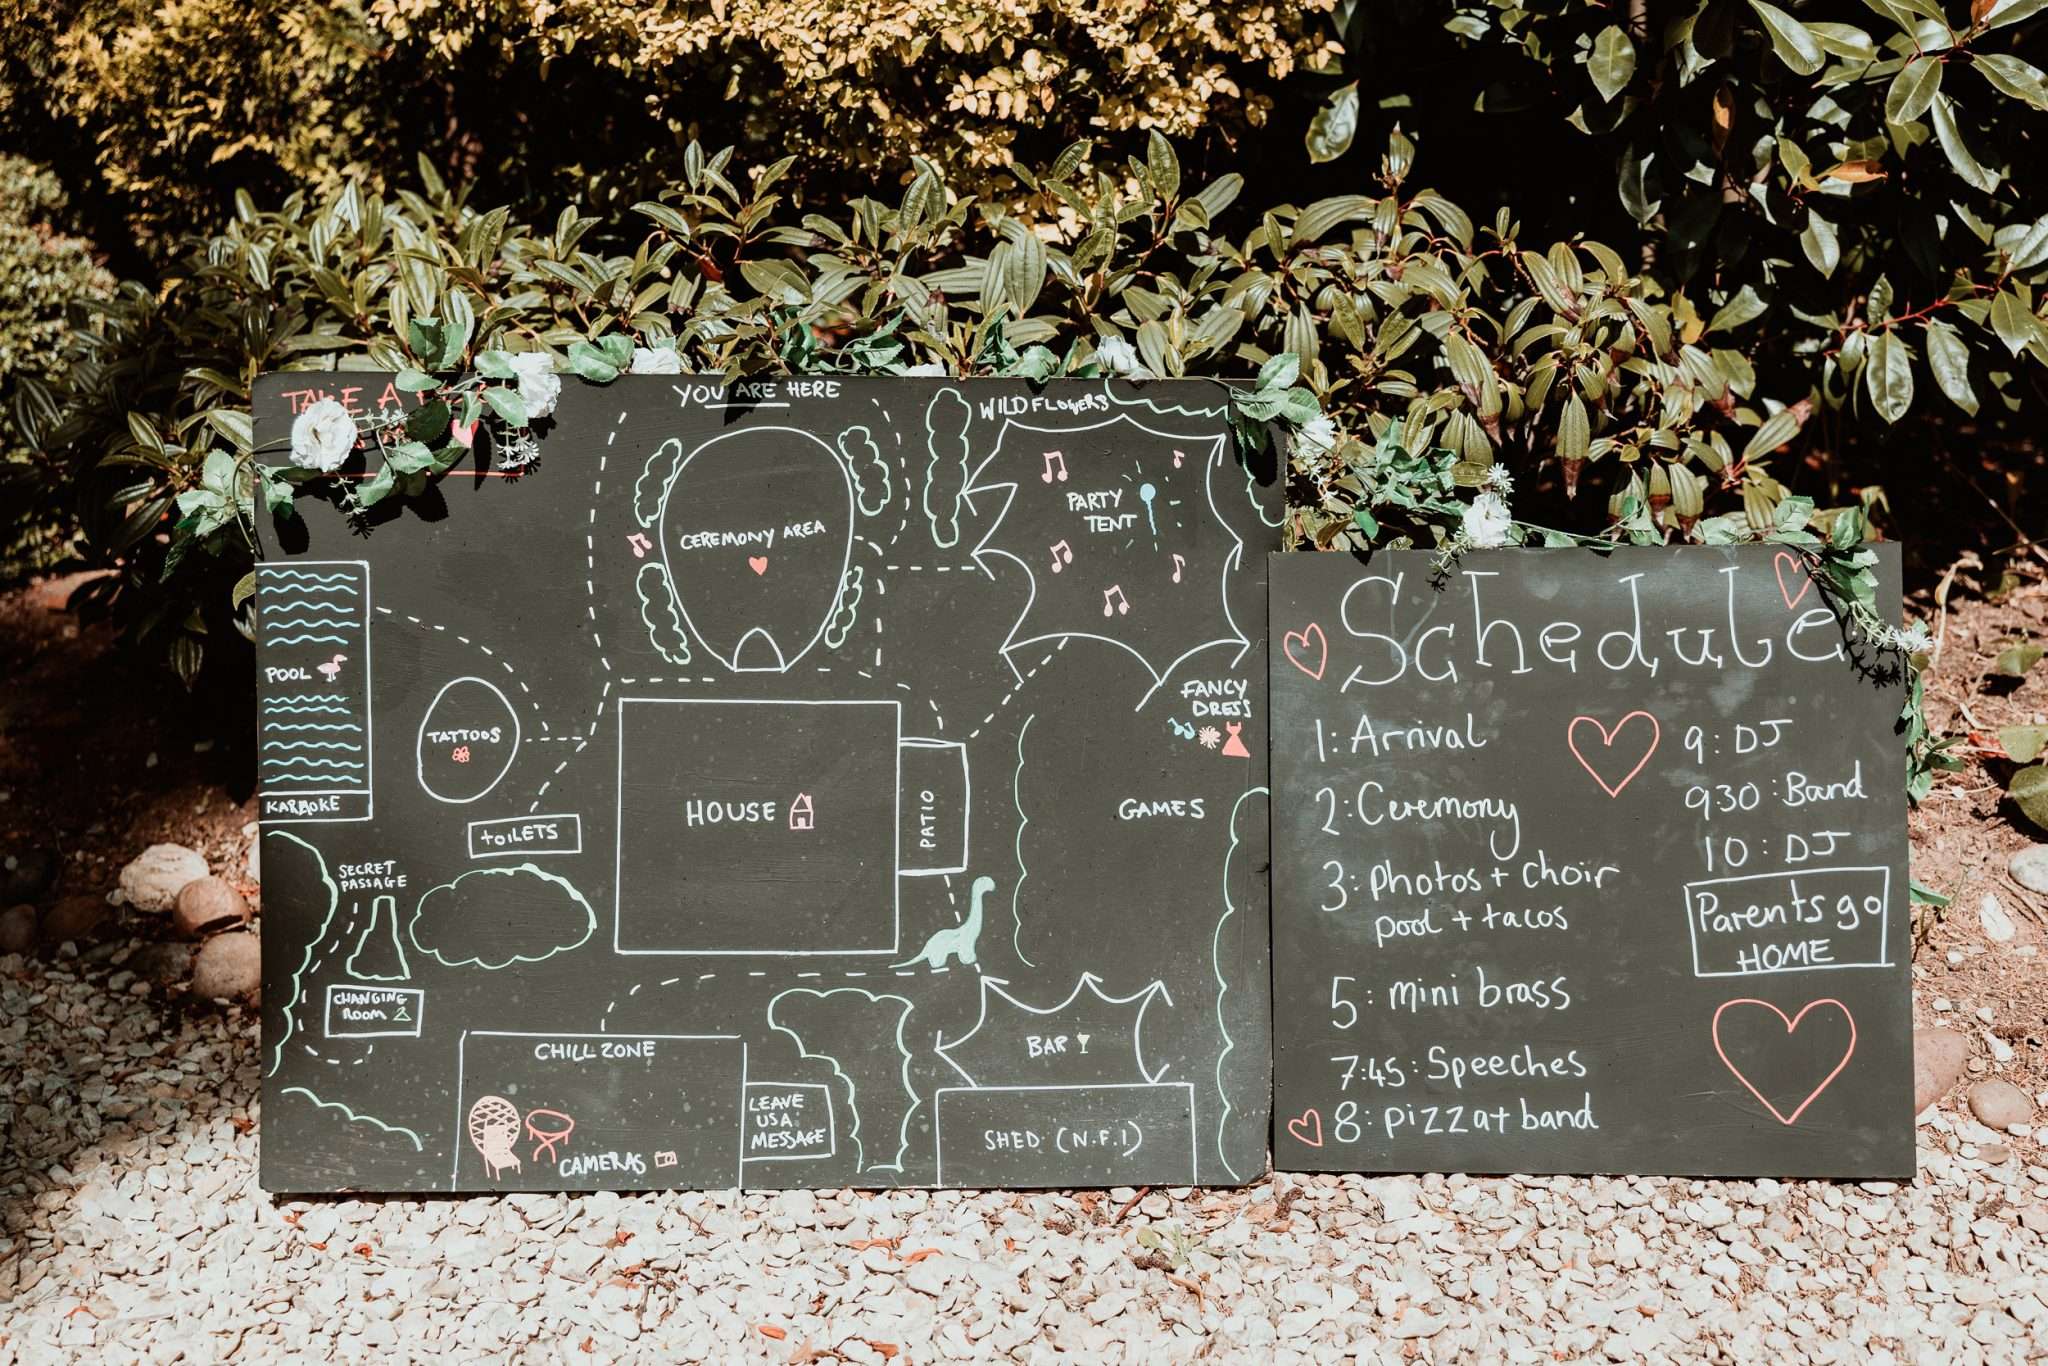 TAKE A
YOU ARE HERE
WILDFLOWERS
PARTY
TENT
CEREMONY AREA
POOL
KARAOKE
TATTOOS
TOILETS
HOUSE
PATIO
FANCY
DRESS
GAMES
SECRET
PASSAGE
CHANGING
ROOM
CHILL ZONE
CAMERAS
LEAVE
US A
MESSAGE
BAR
SHED (N.F.I)
Schedule
1: Arrival
2: Ceremony
3: Photos + choir
pool + tacos
5: mini brass
7:45: Speeches
8: Pizza + band
9: DJ
930: Band
10: DJ
Parents go
HOME